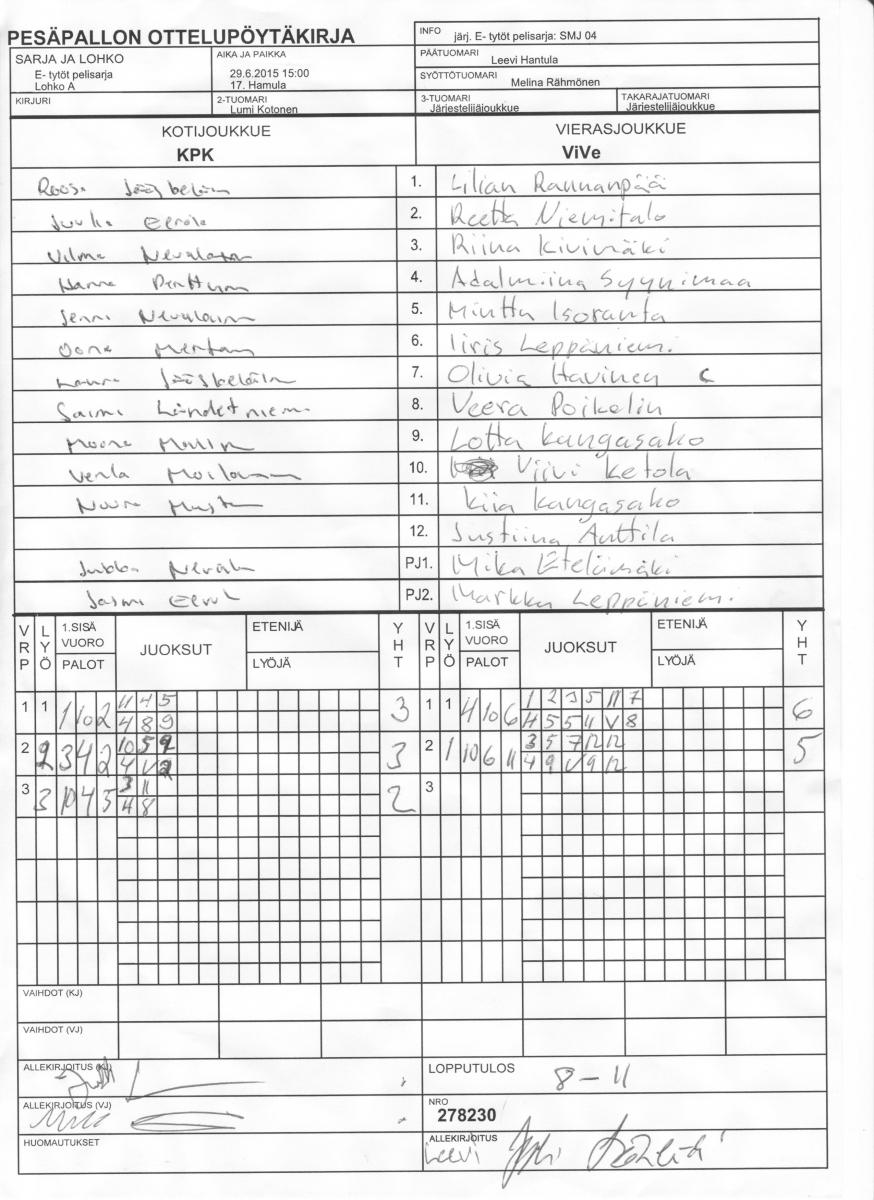 PESÄPALLON OTTELUPÖYTÄKIRJA
INFO järj. E- tytöt pelisarja: SMJ 04
SARJA JA LOHKO
E- tytöt pelisarja
Lohko A
AIKA JA PAIKKA
29.6.2015 15:00
17. Hamula
PÄÄTUOMARI
Leevi Hantula
SYÖTTÖTUOMARI
Melina Rähmönen
KIRJURI
2-TUOMARI
Lumi Kotonen
3-TUOMARI
Järjestelijäjoukkue
TAKARAJATUOMARI
Järjestelijäjoukkue
KOTIJOUKKUE VIERASJOUKKUE
KPK ViVe
Roosa Jääskeläin 1. Lilian Raunanpää
Eerola 2. Reetta Niemitalo
Vilma Nevalain 3. Riina Kivimäki
Hanna Penttinen 4. Adalmiina Syynimaa
Jenni Nevalain 5. Mintta Isoranta
Oona 6. Iiris Leppäniemi
Laura Jääskeläin 7. Olivia Havinen C
Saimi 8. Veera Poikelin
9. Lotta Kangasako
Venla Moilanen 10. Viivi Ketola
Noora 11. Kiia Kangasako
12. Justiina Anttila
Jukka Neval PJ1. Mika Etelämäki
PJ2. Markku Leppäniemi
VRP LYÖ 1.SISÄ VUORO PALOT JUOKSUT ETENIJÄ LYÖJÄ YHT VRP LYÖ 1.SISÄ VUORO PALOT JUOKSUT ETENIJÄ LYÖJÄ YHT
1 1 1 10 2 11 4 5 3 1 1 4 10 6 1 2 3 5 11 7 6
4 8 9 4 5 5 11 V 8
2 2 3 4 2 10 5 9 3 2 1 10 6 11 3 5 7 12 12 5
4 V 2 4 9 V 9 12
3 3 10 4 5 3 11 2 3
4 8
VAIHDOT (KJ)
VAIHDOT (VJ)
ALLEKIRJOITUS (KJ)
LOPPUTULOS 8 - 11
ALLEKIRJOITUS (VJ)
NRO
278230
HUOMAUTUKSET
ALLEKIRJOITUS
Leevi